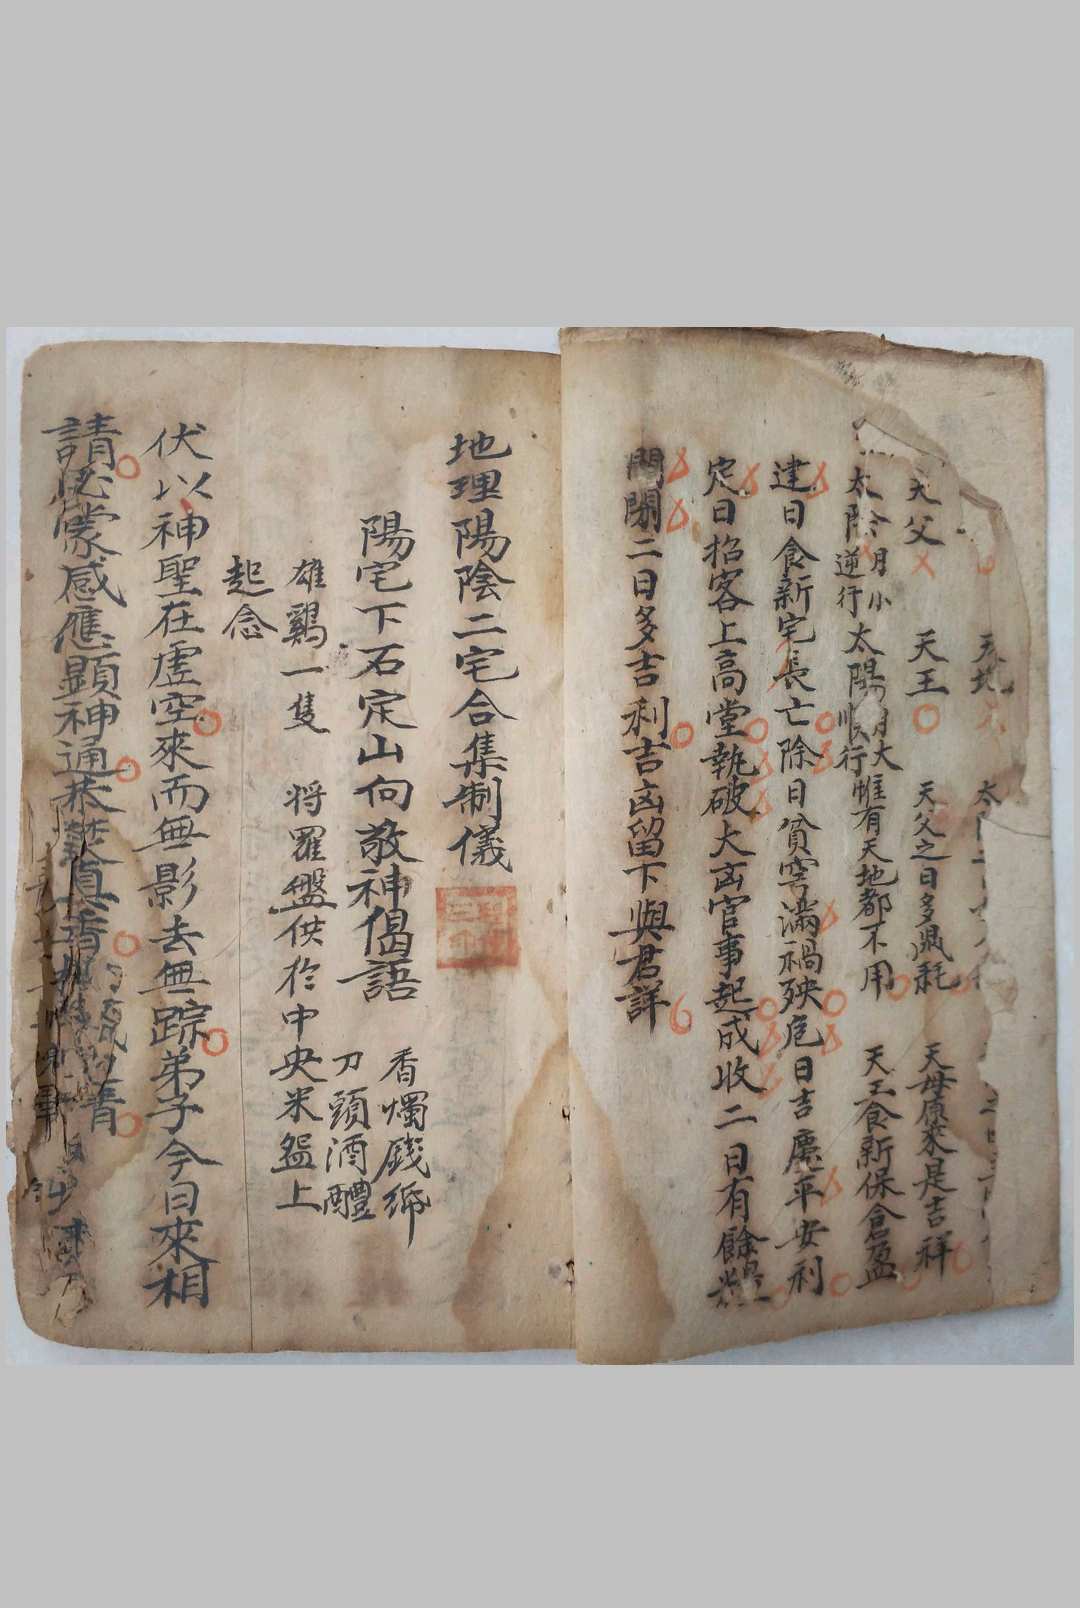 天地
太
天父 天王 天父之日多鼎耗 天母原來是吉祥
太陰月小逆行 太陽月大順行 惟有天地都不用 天王食新保倉盈
建日食新宅長亡除日貧窮滿禍殃危日吉慶平安利
定日招客上高堂執破大凶官事起成收二日有餘糧
開閉二日多吉利吉凶留下與君詳
地理陽陰二宅合集制儀
陽宅下石定山向敬神偈語 香燭錢帋
刀頭酒醴
雄鷄一隻 将羅盤供於中央米盌上
起念
伏以神聖在虛空來而無影去無踪弟子今日來相
請必蒙感應顯神通恭焚真香